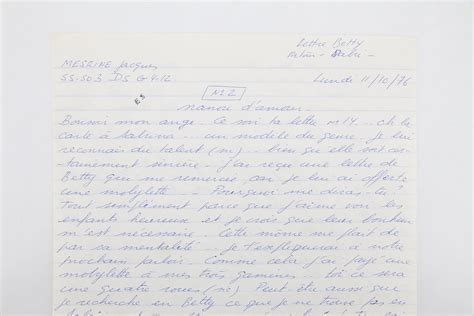 Lettre Betty
MESRINE Jacques
55-503 D5 G4-12
Lundi 11/10/76
N2
nanou d'amour.
Bonsoir mon ange. Ce soir ta lettre n.14.. ch la
carte à Sabrina... un modèle du genre. Je lui
reconnais du talent (sic)... bien que elle soit cer-
tainement sincère. J'ai reçu une lettre de
Betty qui me remercie car je lui ai offert
une mobylette... Pourquoi me diras-tu?
Tout simplement parce que j'aime voir les
enfants heureux et je crois que leur bonheur
m'est nécessaire. Cette môme me plait de
par sa mentalité.. je t'expliquerai à notre
prochain parloir. Comme cela j'ai payé une
mobylette à mes trois gamines... toi ce sera
une quatre roues (sic) Peut être aussi que
je recherche en Betty ce que je ne trouve pas en